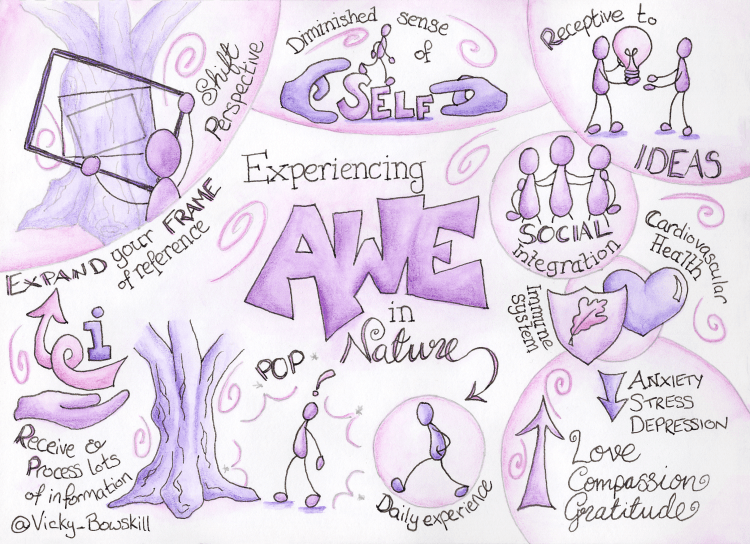 Diminished sense
of
SELF
Receptive to
IDEAS
Shift
Perspective
EXPAND your FRAME
of reference
Experiencing
AWE
in
Nature
SOCIAL
integration
Cardiovascular
Health
Immune
System
i
Receive &
Process lots
of information
POP
!
Daily experience
Anxiety
Stress
Depression
Love
Compassion
Gratitude
@Vicky_Bowskill